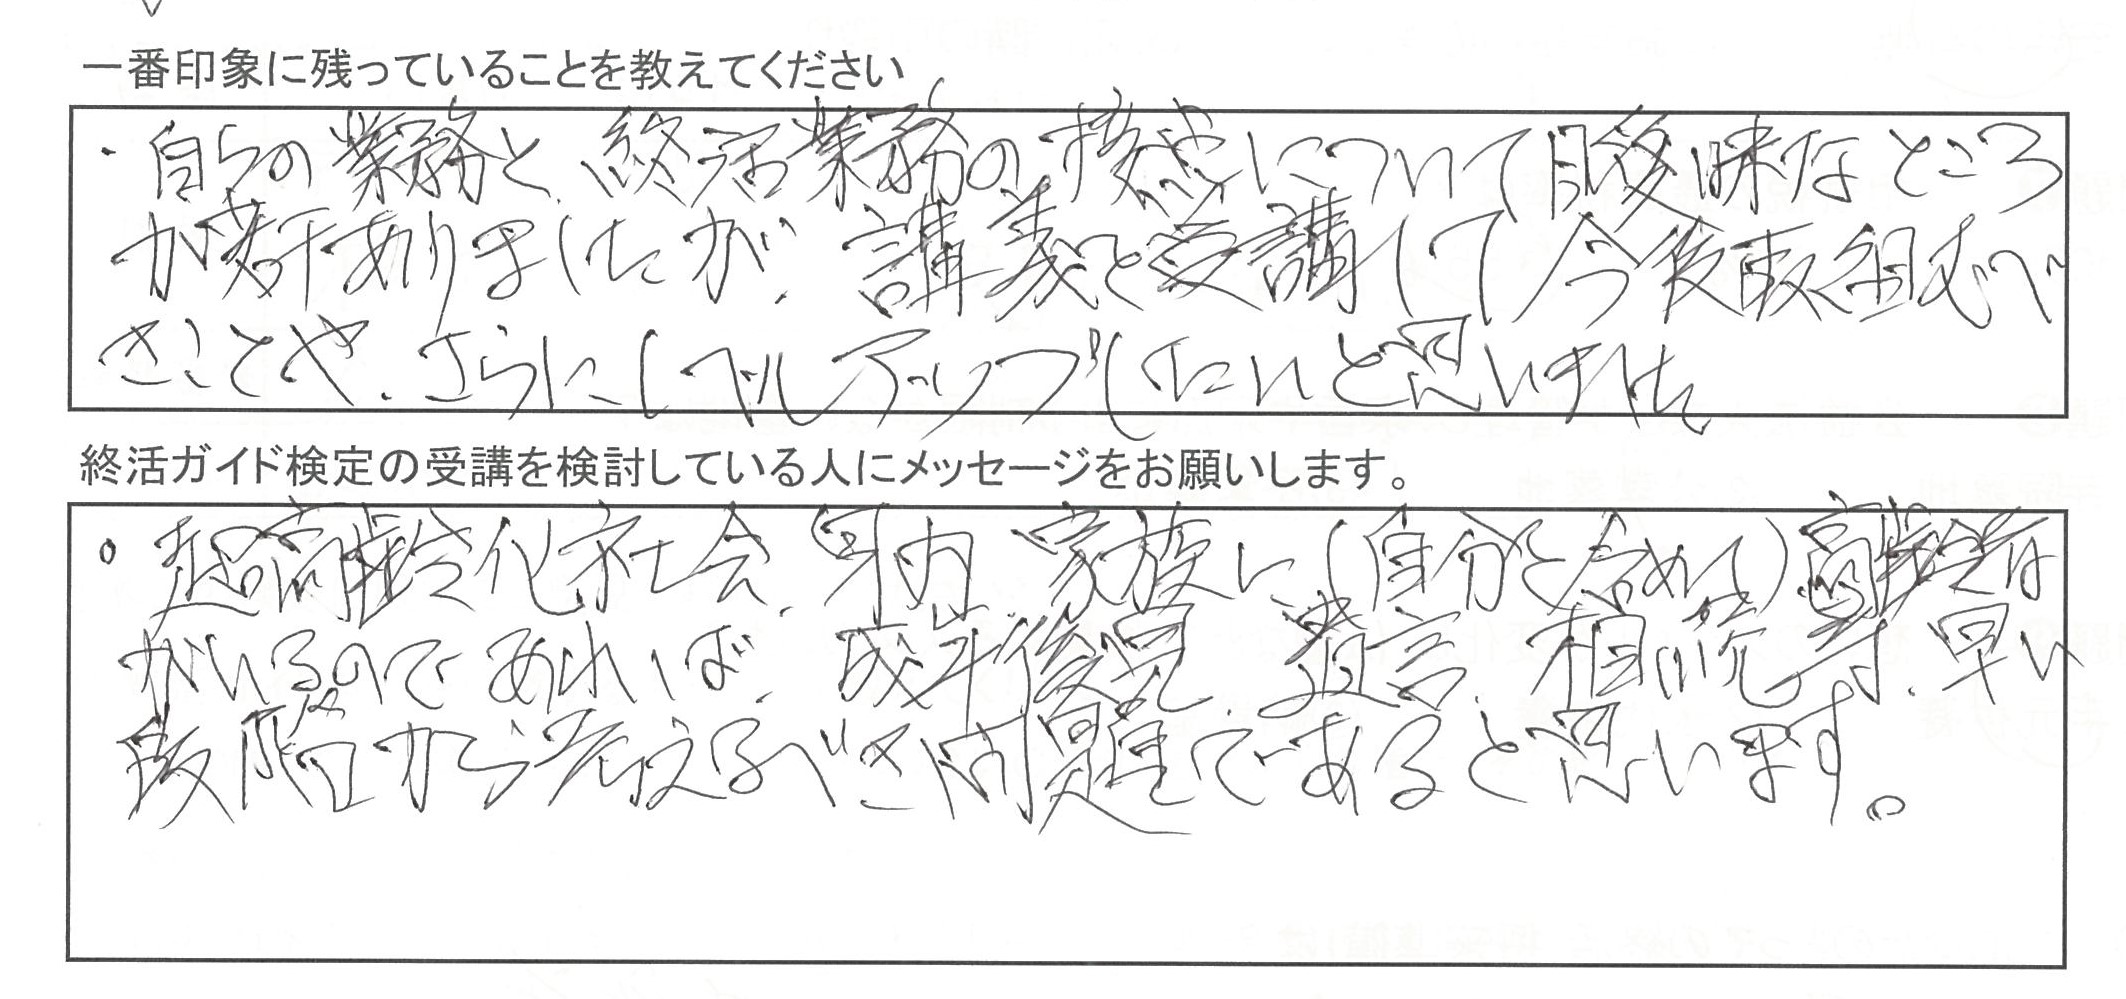 一番印象に残っていることを教えてください
・自らの業務と、終活業務の接点について曖昧なところ
が若干ありましたが、講義を受講して今後取組むべ
きことや、さらにレベルアップしたいと思いました
終活ガイド検定の受講を検討している人にメッセージをお願いします。
○超高齢化社会、身内、家族に(自分を含めて)高齢者
がいるのであれば、成年後見、遺言、相続等、早い
段階から考えるべき問題であると思います。